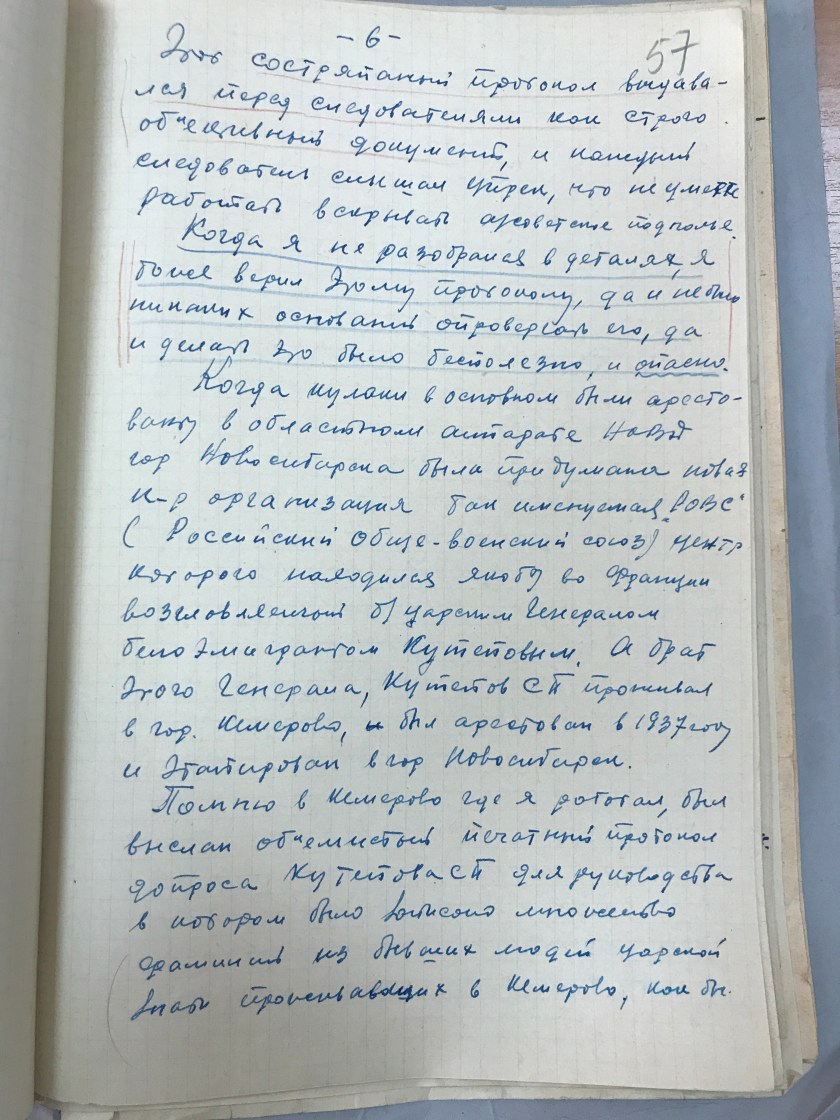 - 6 -
57
Этот состряпанный протокол выдава-
лся перед следователями как строго
об"ективный документ, и каждый
следователь слышал упрек, что не умеете
работать вскрывать а/советские подполье.
Когда я не разобрался в деталях, я
более верил этому протоколу, да и не было
никаких оснований опровергать его, да
и делать это было бесполезно, и опасно.
Когда кулаки в основном были аресто-
ваны в областном аппарате НКВД
гор Новосибирска была придумана новая
к-р организация так именуемая „РОВС"
( Российский Обще-военский союз) центр
которого находился якобы во Франции
возглавляемый б/царским Генералом
белоэмигрантом Кутеповым. А брат
этого Генерала, Кутепов СП проживал
в гор. Кемерово, и был арестован в 1937 году
и этапирован в гор Новосибирск.
Помню в Кемерово где я работал, был
выслан об"емистый печатный протокол
допроса Кутепова СП для руководства
в котором было записано множество
фамилий из бывших людей царской
знати проживавших в Кемерово, как бы.